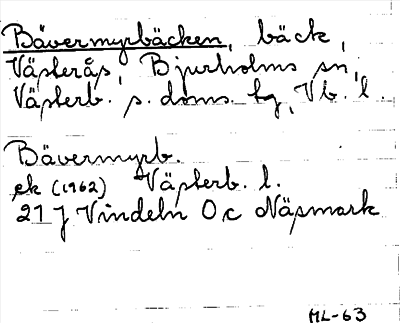 Bävermyrbäcken, bäck,
Västerås, Bjurholms sn,
Västerb. s. doms. hg, Vb. l.
Bävermyrb.
ek (1962) Västerb. l.
21 J Vindeln 0 c Näsmark
ML-63